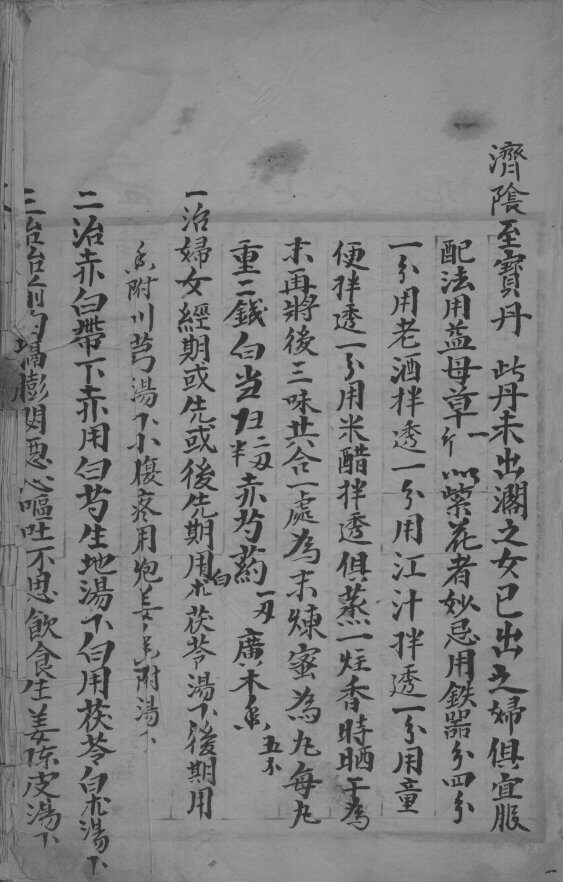 濟陰至寶丹 此丹未出閣之女已出之婦俱宜服
配法用益母草一斤 以紫花者妙忌用鉄器分四分
一分用老酒拌透一分用江汁拌透一分用童
便拌透一分用米醋拌透俱蒸一炷香時晒干為
末再將後三味共合一處為末煉蜜為丸每丸
重二錢白当归二刄半赤芍药一刄 廣木香五分
一治婦女經期或先或後先期用白朮茯苓湯下後期用
香附川芎湯下小腹疼用炮姜香附湯下
二治赤白帶下赤用白芍生地湯下白用茯苓白朮湯下
三治胎前胸膈膨悶惡心嘔吐不思飲食生姜陳皮湯下